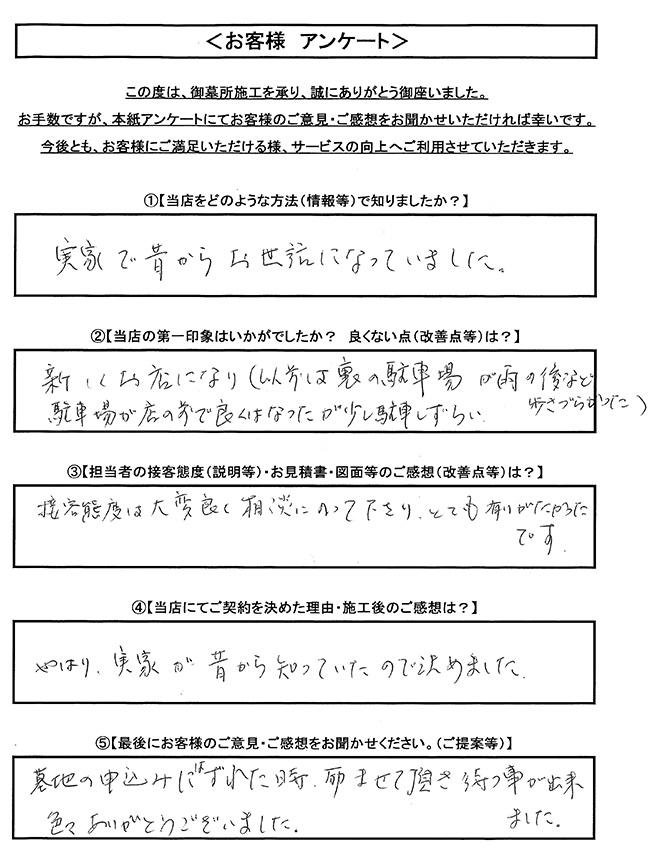 ＜お客様 アンケート＞
この度は、御墓所施工を承り、誠にありがとう御座いました。
お手数ですが、本紙アンケートにてお客様のご意見・ご感想をお聞かせいただければ幸いです。
今後とも、お客様にご満足いただける様、サービスの向上へご利用させていただきます。
①【当店をどのような方法（情報等）で知りましたか？】
実家で昔からお世話になっていました。
②【当店の第一印象はいかがでしたか？ 良くない点（改善点等）は？】
新しくお店になり（以前は裏の駐車場が雨の後など
歩きづらかった）
駐車場が店の前で良くはなったが少し駐車しずらい.
③【担当者の接客態度（説明等）・お見積書・図面等のご感想（改善点等）は？】
接客態度は大変良く相談にのって下さり、とても有りがたかった
です.
④【当店にてご契約を決めた理由・施工後のご感想は？】
やはり、実家が昔から知っていたので決めました.
⑤【最後にお客様のご意見・ご感想をお聞かせください。（ご提案等）】
墓地の申込みにはずれた時、励ませて頂き待つ事が出来
ました.
色々ありがとうございました.